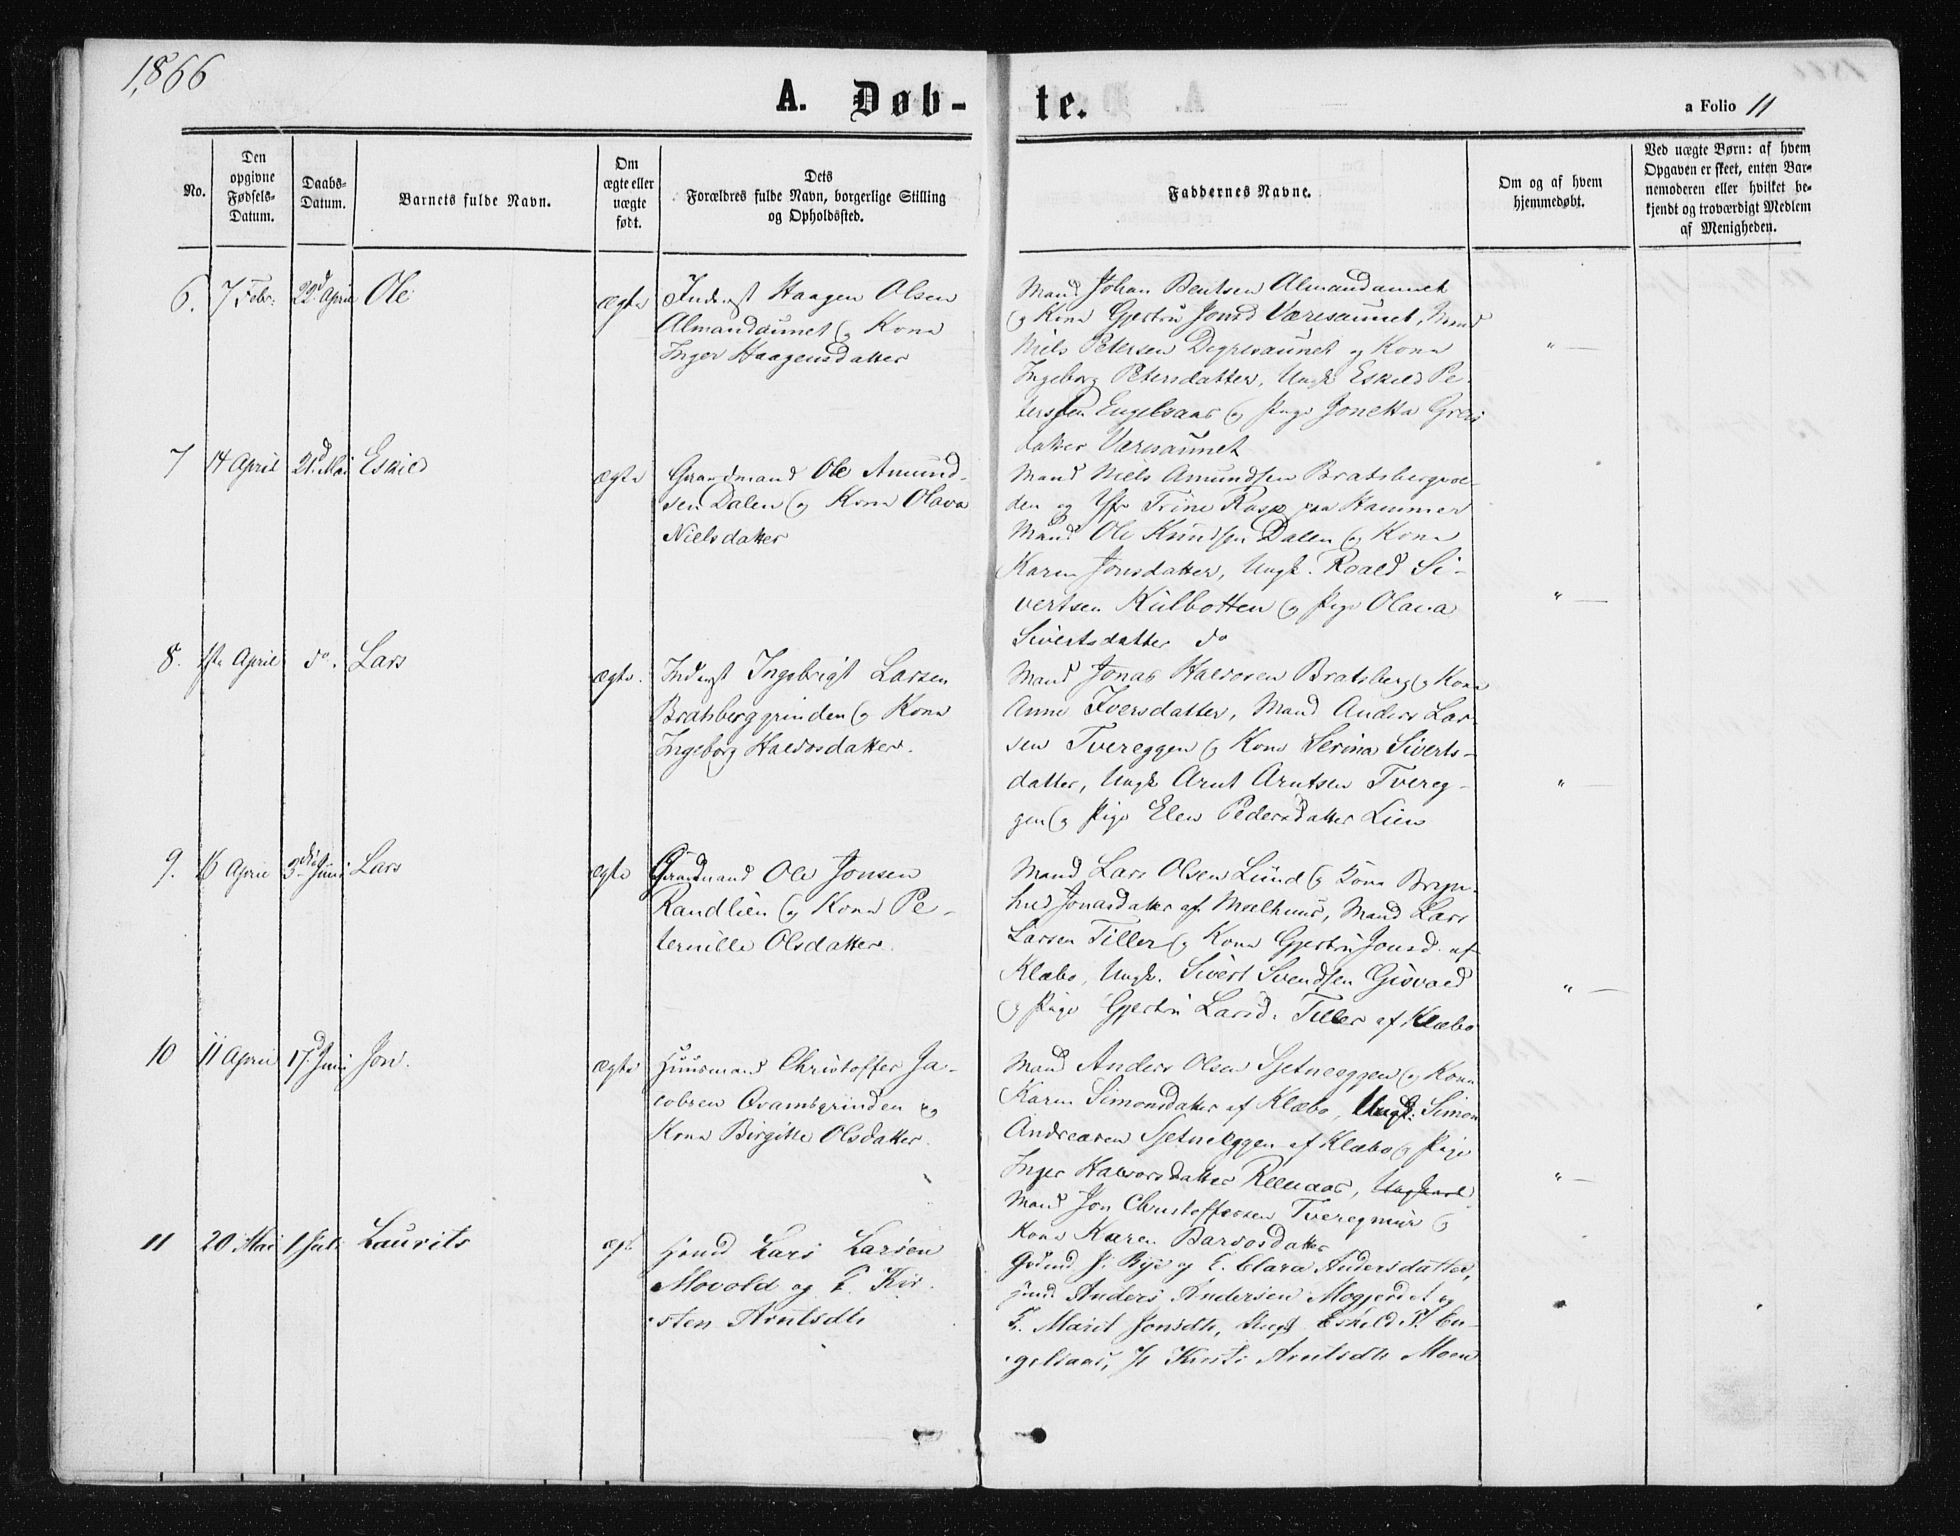 1866
A. Døb-
te.
a Folio 11
No.
Den
opgivne
Fødsels-
Datum.
Daabs-
Datum.
Barnets fulde Navn.
Om
ægte eller
uægte
født.
Dets
Forældres fulde Navn, borgerlige Stilling
og Opholdssted.
Faddernes Navne.
Om og af hvem
hjemmedøbt.
Ved uægte Børn: af hvem
Opgaven er skeet, enten Bar-
nemoderen eller hvilket be-
kjendt og troværdigt Medlem
af Menigheden.
6. 7 Febr. 22d April Ole
ægte
Inderst Haagen Olsen
Almandaunet og Kone
Inger Haagensdatter
Mand Johan Bentsen Almandaunet
og Kone Gjertru Jonsd Væresaunet, Mand
Niels Petersen Digresaunet og Kone
Ingeborg Petersdatter, Ungk Eskild Pe-
tersen Engelsaas og Pige Jonetta
datter Væresaunet
" —
7 14 April 21d Mai Eskild
ægte
Gaardmand Ole Amund-
sen Dalen og Kone Olava
Nielsdatter
Mand Niels Amundsen Bratsbergvol-
den og Jfr Trine Rasp paa Hammer
Mand Ole Knudsen Dalen og Kone
Karen Jonsdatter, Ungk. Roald Si-
vertsen Kulbotten og Pige Olava
Sivertsdatter do
" —
8. 1ste April do. Lars
ægte.
Inderst Ingebrigt Larsen
Bratsberggrinden og Kone
Ingeborg Halvosdatter.
Mand Jonas Halvorsen Bratsberg og Kone
Anne Iversdatter, Mand Anders Lar-
sen Tvereggen og Kone Serina Siverts-
datter, Ungk Arnt Arntsen Tvereg-
gen og Pige Elen Pedersdatter Lien
" —
9. 16 April 3die Juni Lars
ægte
Gaardmand Ole Jonsen
Randlien og Kone Pe-
ternille Olsdatter.
Mand Lars Olsen Lund og Kone Bryn-
hild Jonasdatter af Melhuus, Mand Lars
Larsen Tiller og Kone Gjertru Jonsd. af
Klæbo, Ungk. Sivert Svendsen Gisvold
og Pige Gjertru Larsd. Tiller af Klæbo
" —
10 11 April 17d Juni Jon.
ægte
Huusmand Christoffer Ja-
cobsen Qvamsgrinden og
Kone Birgitte Olsdatter.
Mand Anders Olsen Sjetneeggen og Kone
Karen Simonsdatter af Klæbo, Ungk. Simon
Andreasen Sjetneeggen af Klæbo og Pige
Inger Halvorsdatter Reenaas,
Mand Jon Christoffersen Tveregmur og
Kone Karen Baroosdatter
" —
11 20 Mai 1 Juli Laurits
ægt.
Hmd Lars Larsen
Movold og E. Kir-
sten Arntsdtr
Gdmd J. Bye og E. Clara Andersdatter,
Anders Andersen Mogjerdet og
E. Marit Jonsdtr, Ungk Eskild P. En-
gelsaas, P. Kirsti Arntsdtr Moen